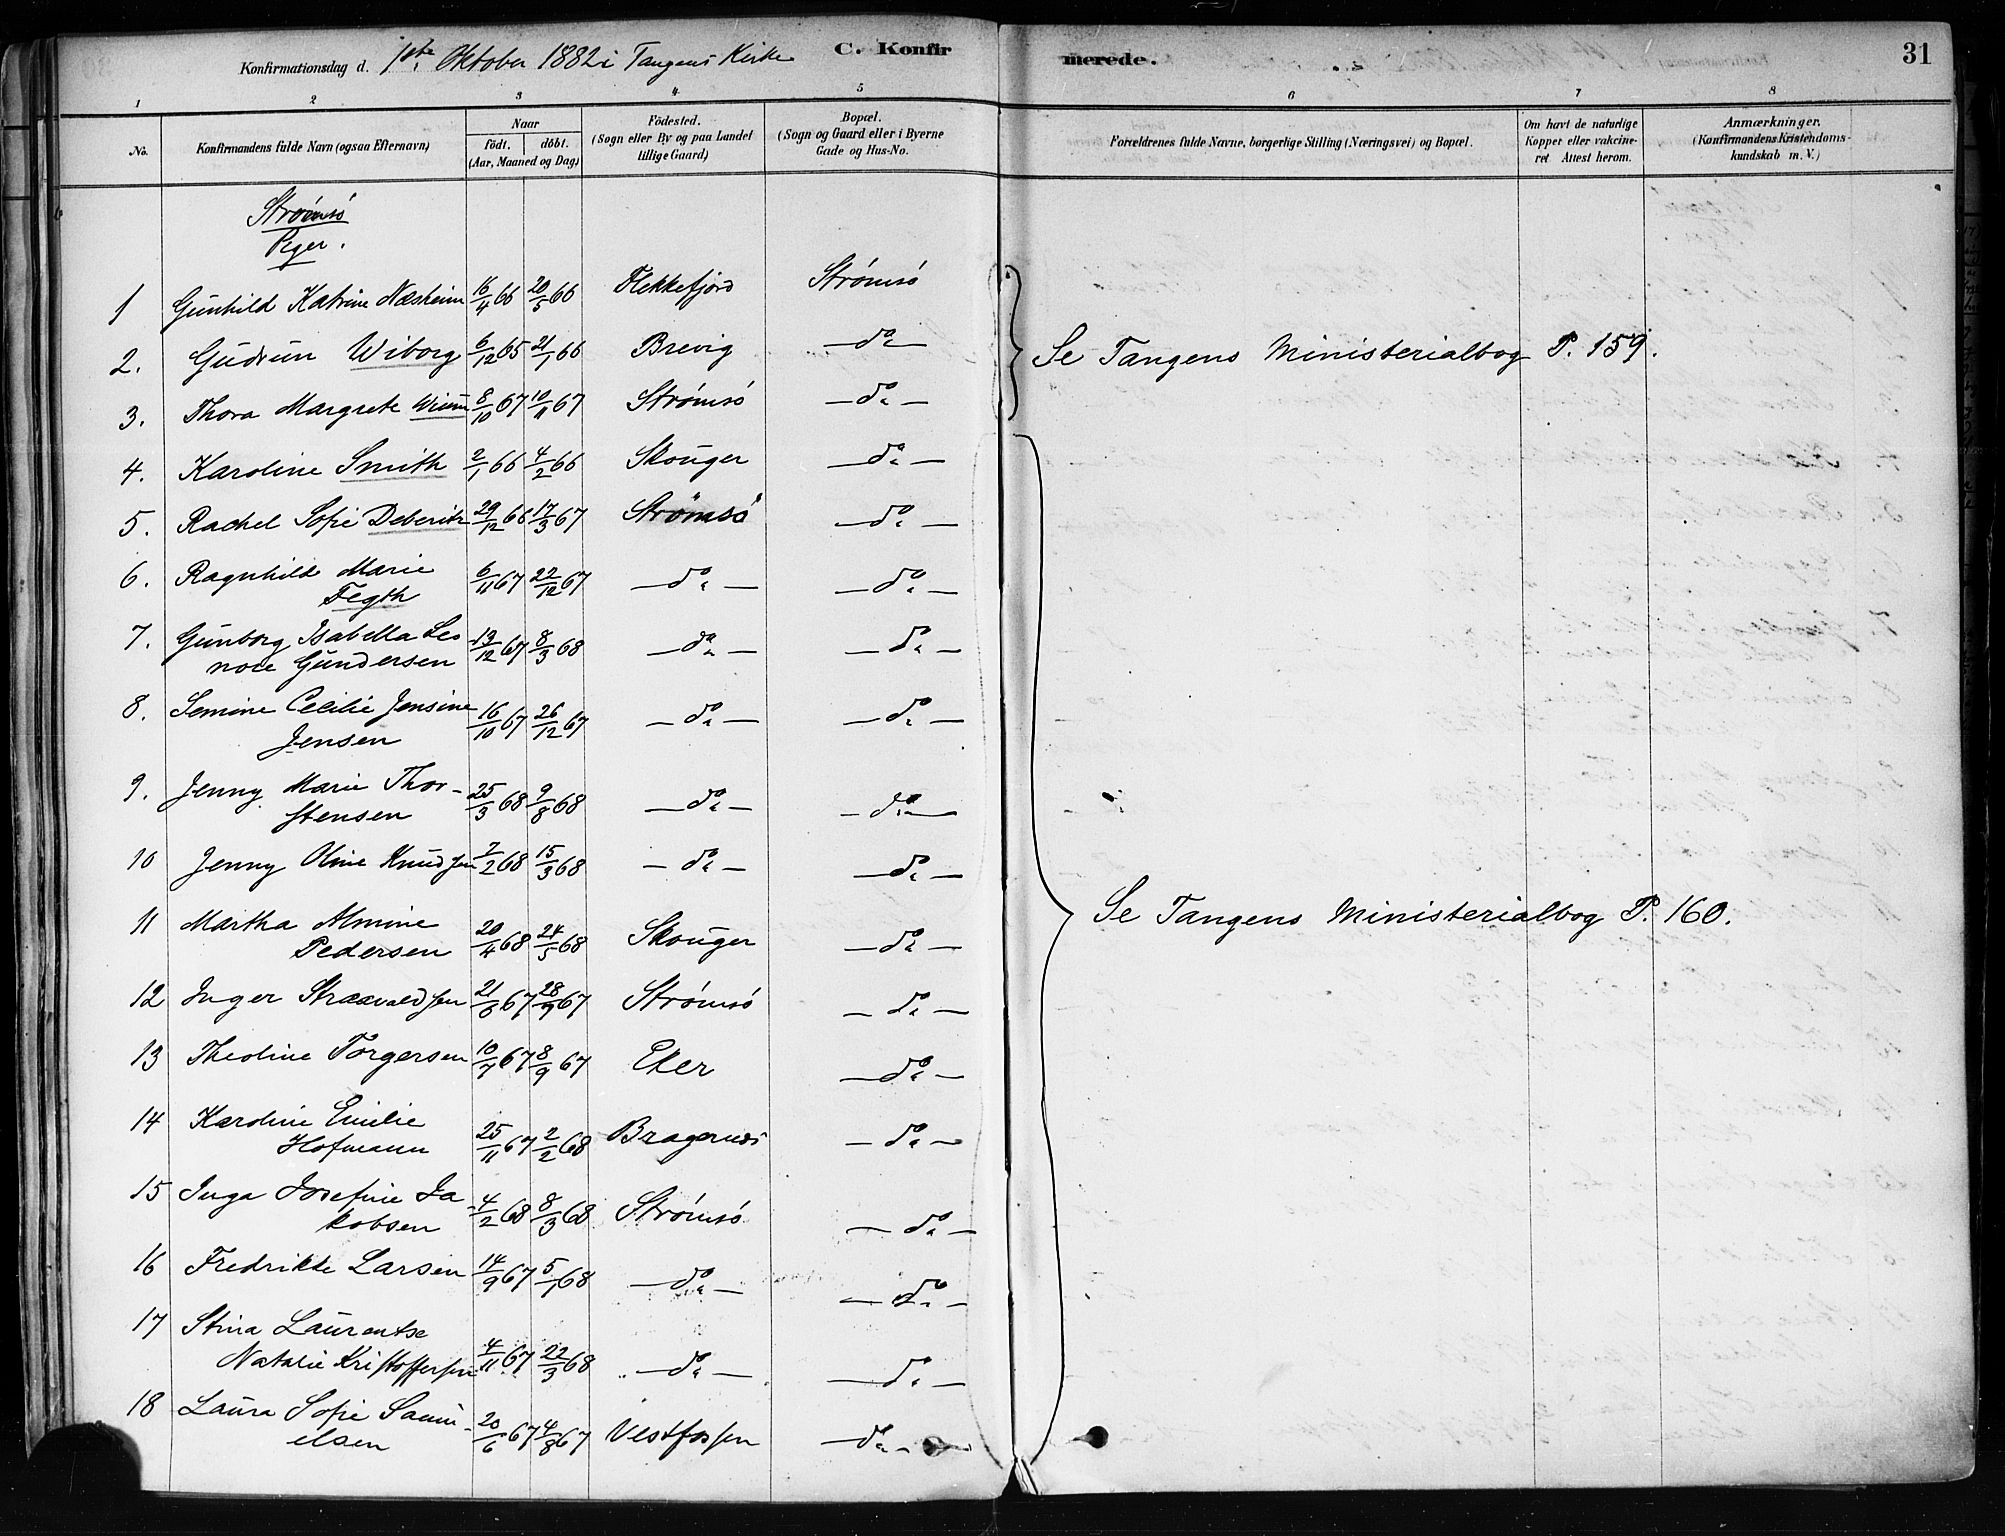 Konfirmationsdag d. 1ste Oktober 1882 i Tangens Kirke C. Konfirmerede. 31
1 2 3 4 5 6 7 8
No. Konfirmandens fulde Navn (ogsaa Efternavn) Naar födt. döbt. (Aar, Maaned og Dag) Födested. (Sogn eller By og paa Landet tillige Gaard) Bopæl. (Sogn og Gaard eller i Byerne Gade og Hus-No. Forældrenes fulde Navne, borgerlige Stilling (Næringsvei) og Bopæl. Om havt de naturlige Kopper eller vakcineret Attest herom. Anmærkninger. (Konfirmandens Kristendomskundskab m. V.)
Strømsö
Piger.
1 Gunhild Katrine Næsheim 16/4 66 20/5 66 Flekkefjord Strømsö
2. Gudrun Wiborg 6/12 65 21/1 66 Brevig do
Se Tangens Ministerialbog P. 159.
3. Thora Margrete 8/10 67 10/11 67 Strømsö do
4. Karoline Smith 2/1 66 4/2 66 Skouger do
5. Rachel Sofie Deberitz 29/12 66 17/3 67 Strømsö do
6. Ragnhild Marie
Fegth 6/11 67 22/12 67 do do
7. Gunborg Isabella Leo
nore Gundersen 13/12 67 8/3 68 do do
8. Semine Cecilie Jensine
Jensen 16/10 67 26/12 67 do do
9. Jenny Marie Thor-
stensen 25/3 68 9/8 68 do do
10 Jenny Oline Knudsen 7/2 68 15/3 68 do do
11 Martha Almine
Pedersen 20/4 68 24/5 68 Skouger do
Se Tangens Ministerialbog P. 160.
12 Inger Straavaldsen 21/8 67 28/9 67 Strømsö do
13 Theoline Torgersen 10/7 67 8/9 67 Eker do
14 Karoline Emilie
Hofmann 25/11 67 2/2 68 Bragernæs do
15 Inga Josefine Ja
kobsen 4/2 68 8/3 68 Strømsö do
16 Fredrikke Larsen 14/9 67 5/1 68 do do
17 Stina Laurentse
Natalie Kristoffersen 4/11 67 22/3 68 do do
18 Laura Sofie Samu-
elsen 20/6 67 4/8 67 Vestfossen do